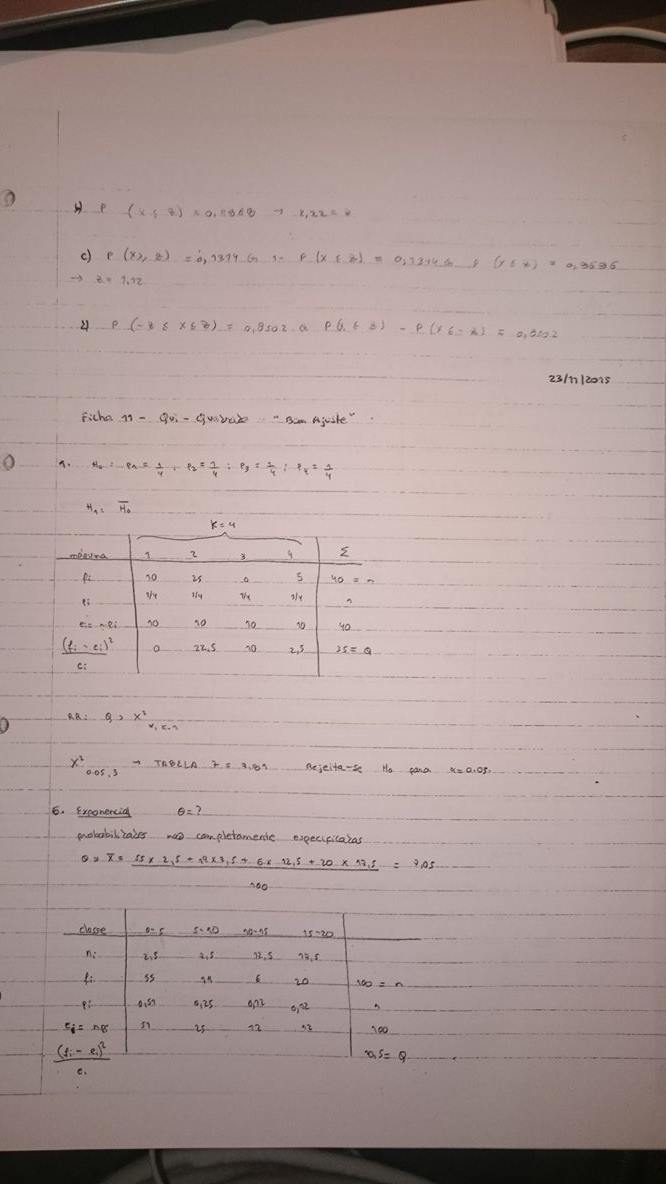 P (X ≤ z) = 0,8868 → 1,22 = z
c) P (X ≥ z) = 0,1314 ⇔ 1 - P (X ≤ z) = 0,1314 ⇔ P (X ≤ z) = 0,8686
→ z = 1,12
P (-z ≤ X ≤ z) = 0,9502 ⇔ P (X ≤ z) - P (X ≤ -z) = 0,9502
23/11/2015
Ficha 11 - Qui - Quadrado "Bom Ajuste"
1. H₀ : p₁ = 1/4 ; p₂ = 1/4 ; p₃ = 1/4 ; p₄ = 1/4
H₁ : H̅₀
K = 4
máquina 1 2 3 4 Σ
fi 10 25 0 5 40 = n
pi 1/4 1/4 1/4 1/4 1
ei = npi 10 10 10 10 40
(fi - ei)²/ei 0 22,5 10 2,5 35 = Q
RR: Q > X²
X² 0.05, 3 → TABELA 7 = 7,81 Rejeita-se H₀ para α = 0.05.
6. Exponencial θ = ?
probabilidades não completamente especificadas
θ = x̅ = 55 x 2,5 + 19 x 7,5 + 6 x 12,5 + 20 x 17,5 = 7,05
100
classe 0-5 5-10 10-15 15-20
ni 2,5 7,5 12,5 17,5
fi 55 19 6 20 100 = n
pi 0,51 0,25 0,12 0,12 1
ei = npi 51 25 12 12 100
(fi - ei)²/ei 10,5 = Q